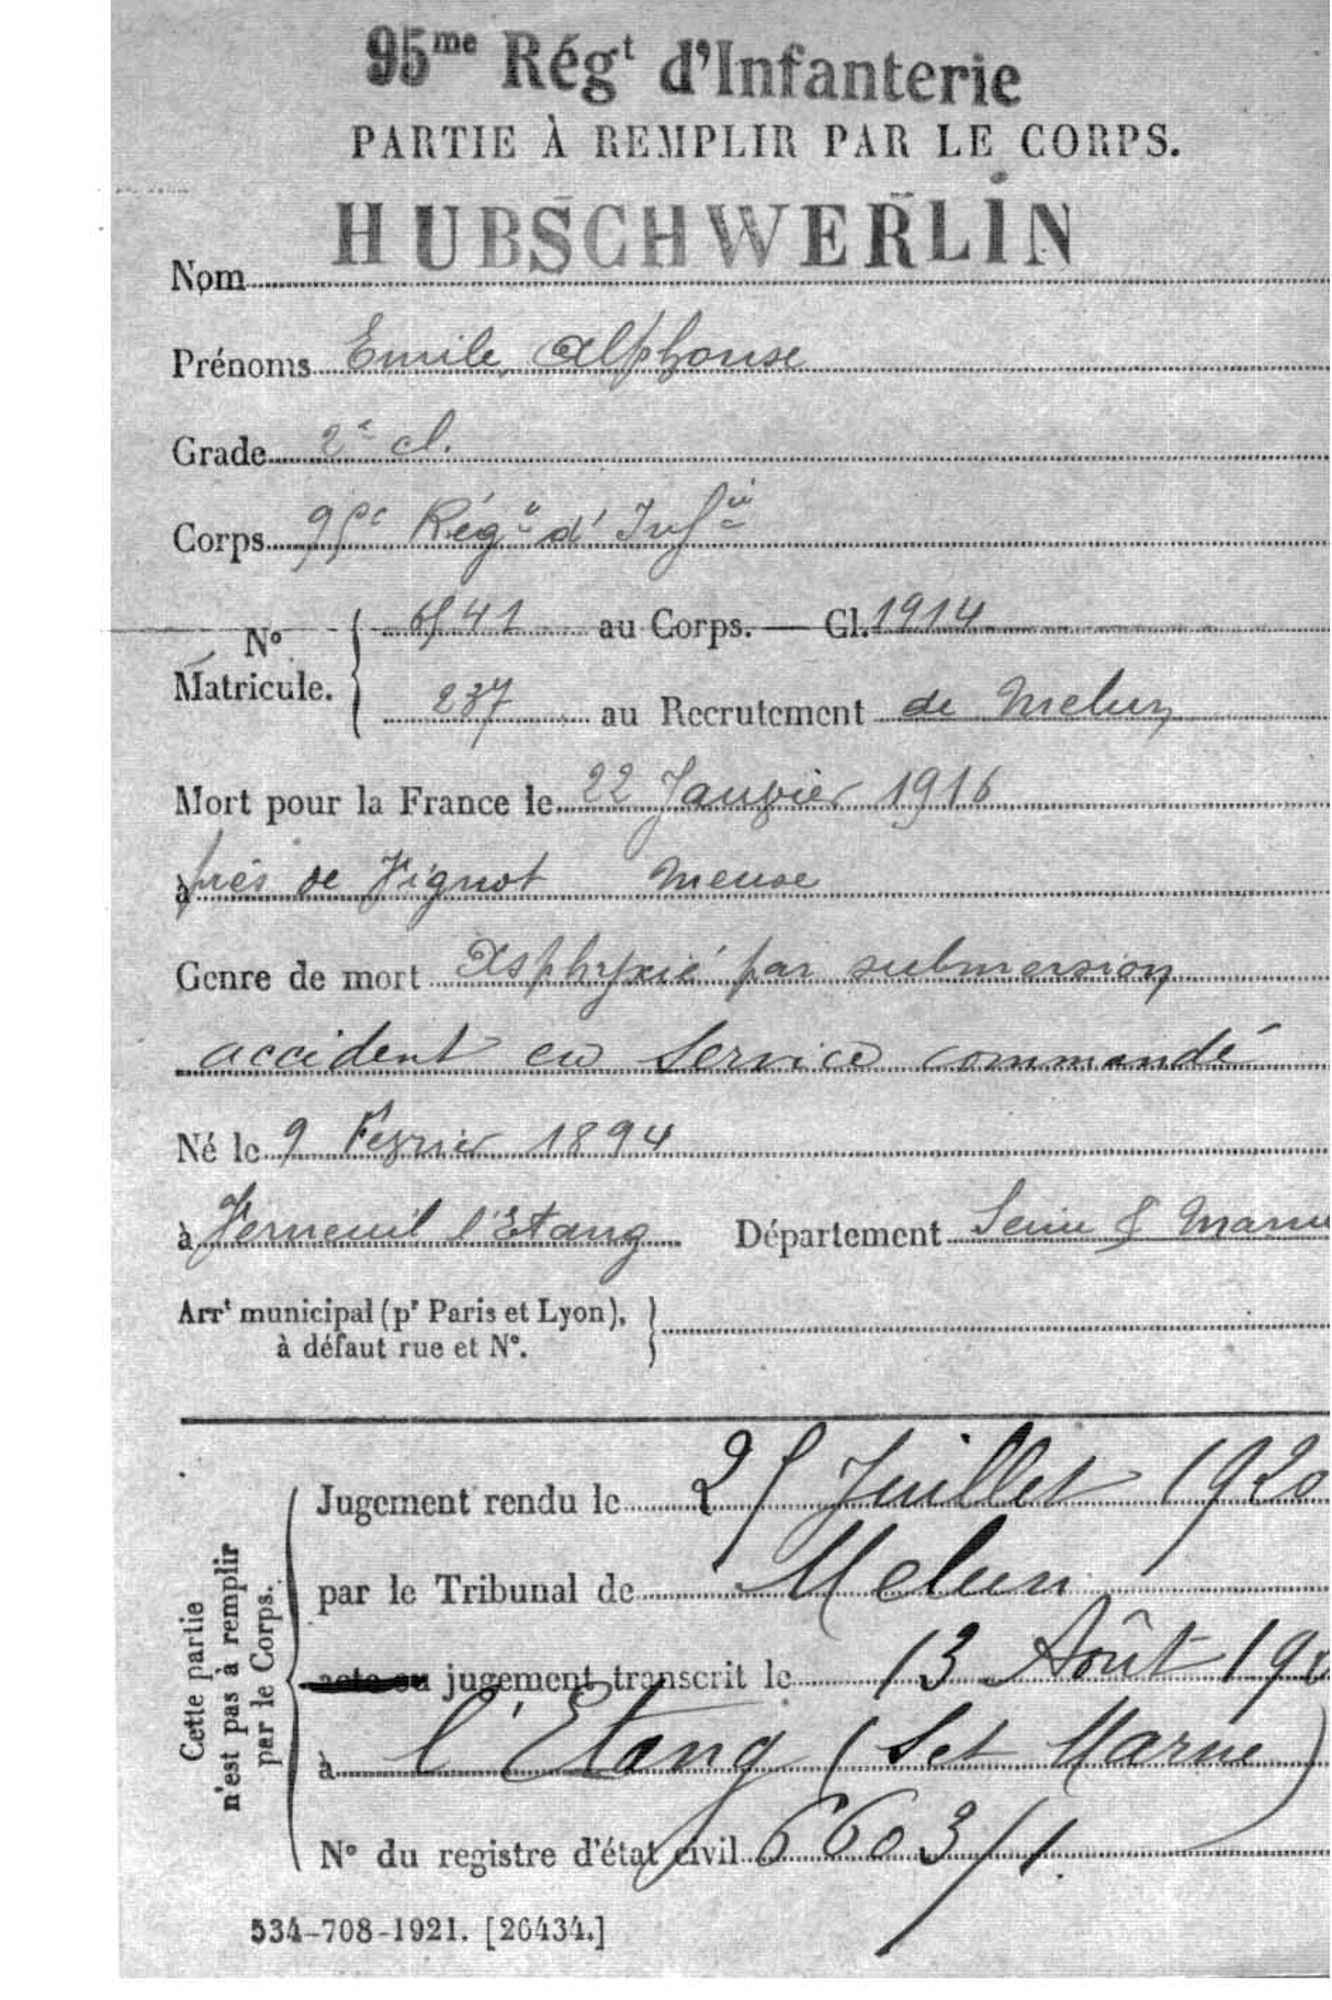 95me Régt d'Infanterie
PARTIE À REMPLIR PAR LE CORPS.
HUBSCHWERLIN
Nom
Prénoms Emile, Alphonse
Grade 2e cl.
Corps 95e Régt d'Infie
No Matricule. 6541 au Corps. — Cl. 1914
237 au Recrutement de Melun
Mort pour la France le 22 Janvier 1916
à près de Vignot Meuse
Genre de mort Asphyxié par submersion
accident en service commandé
Né le 9 Février 1894
à Verneuil l'Etang Département Seine & Marne
Arrt municipal (pr Paris et Lyon),
à défaut rue et No.
Cette partie
n'est pas à remplir
par le Corps.
Jugement rendu le 25 Juillet 1920
par le Tribunal de Melun
acte ou jugement transcrit le 13 Août 19
à l'Etang (Set Marne)
No du registre d'état civil 6603/1.
534-708-1921. [26434.]